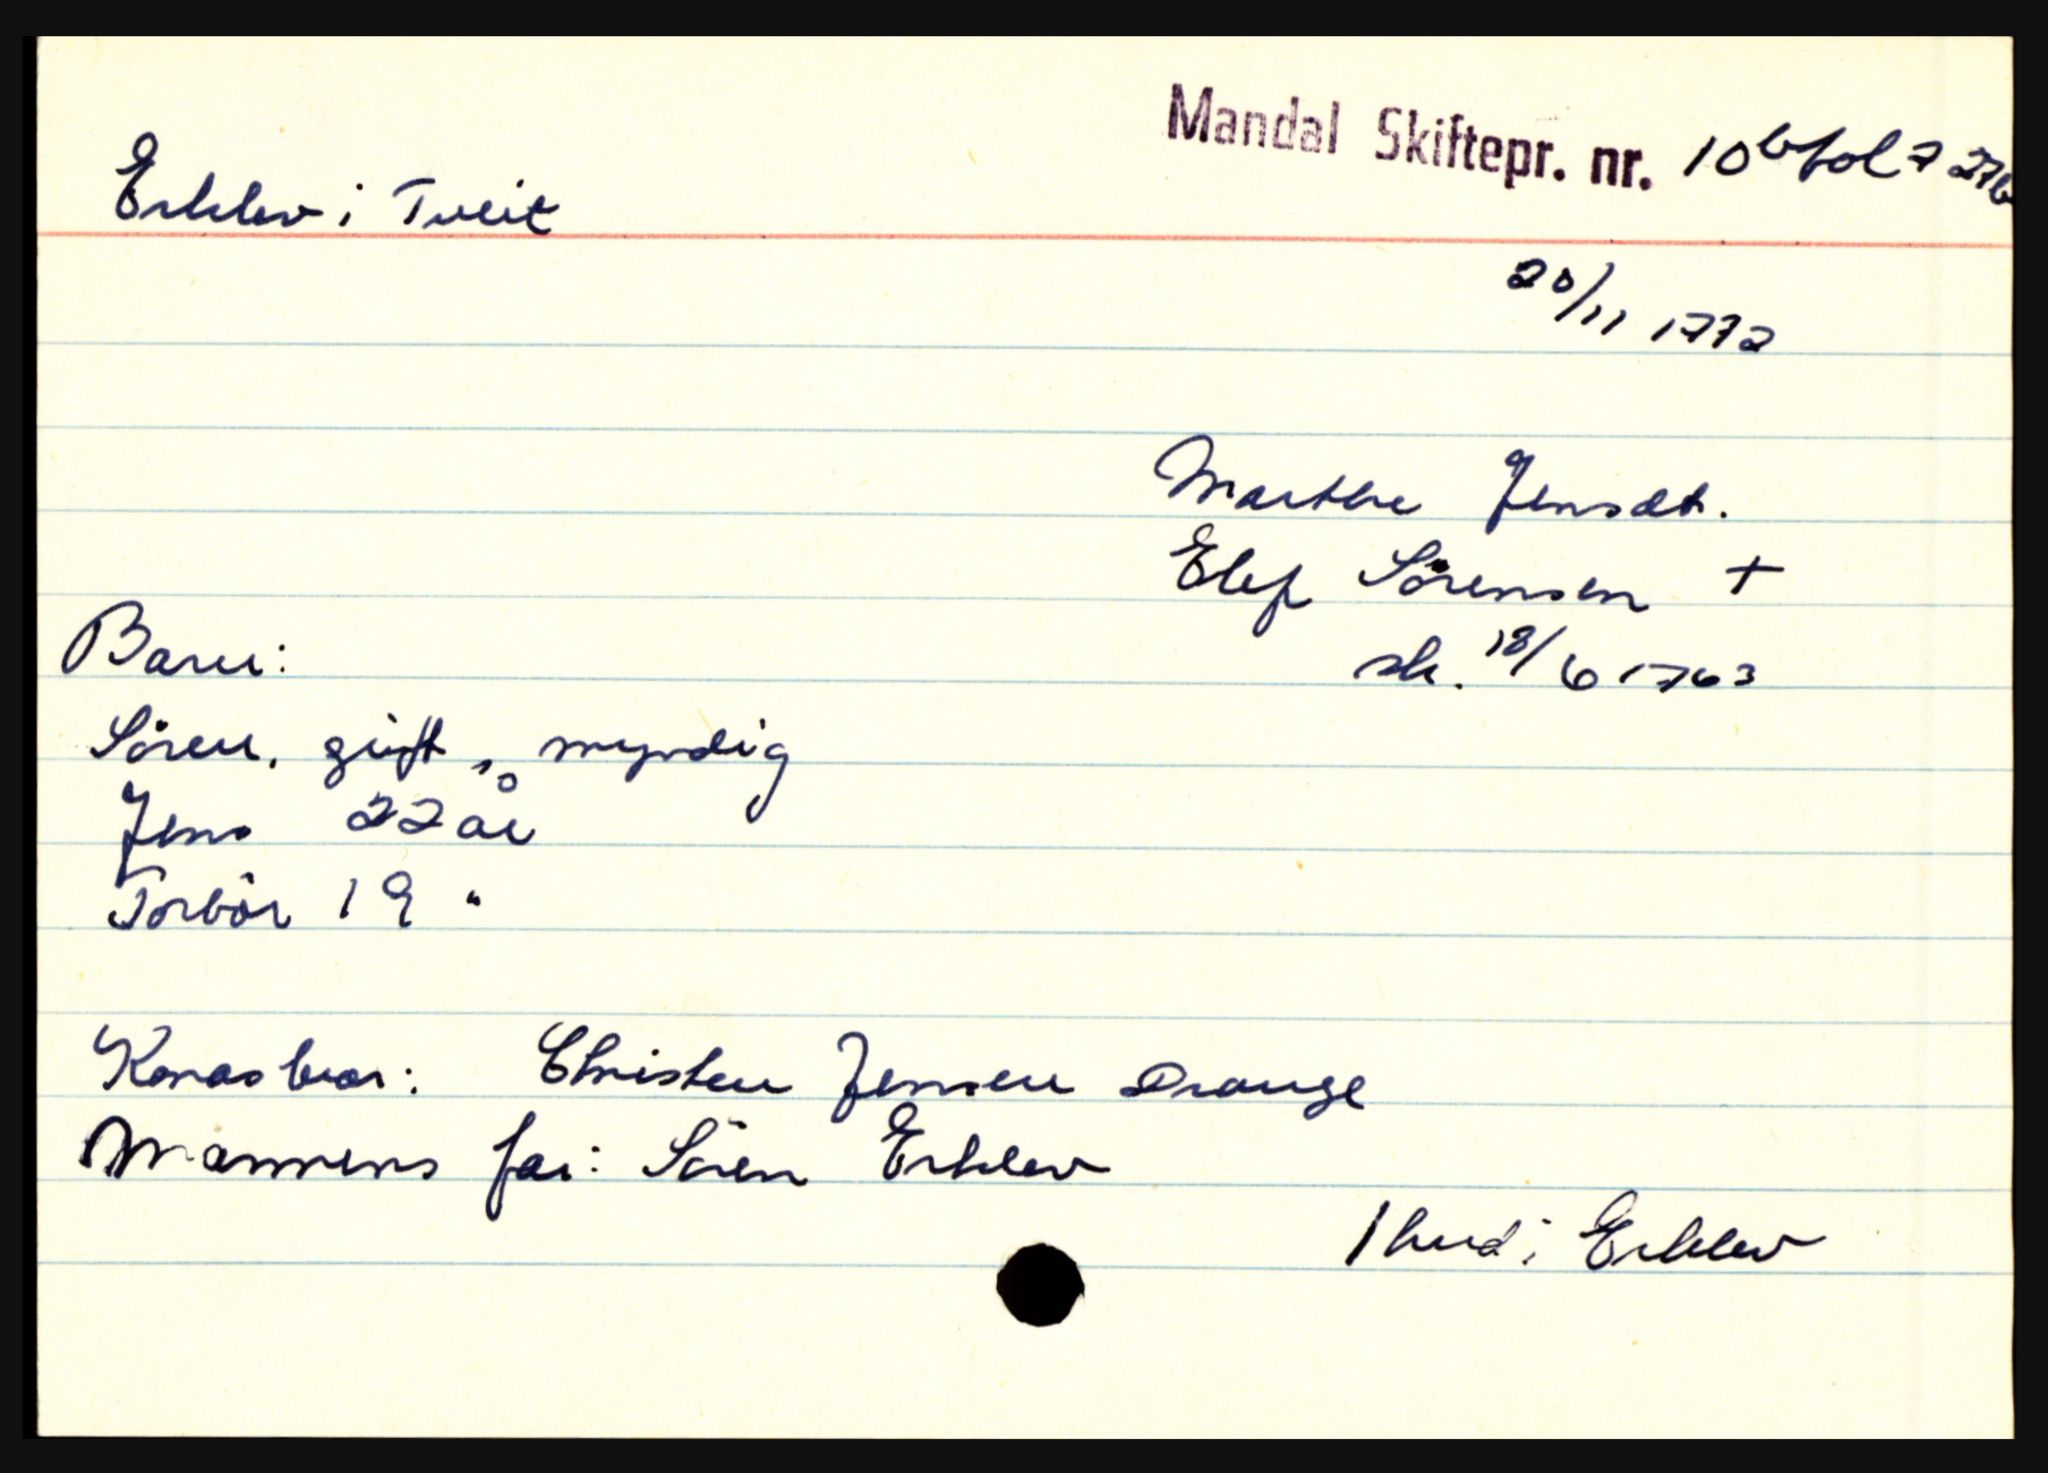 Mandal Skiftepr. nr. 10b fol 7 276
Erklev i Tveit
20/11 1772
Marthe Jensdt.
Elef Sörensen +
sk. 18/6 1763
Barn:
Sören, gift, myndig
Jens 22 år
Torbör 19 "
Konas bror: Christen Jensen Drange
Mannens far: Sören Erklev
1 hud i Erklev